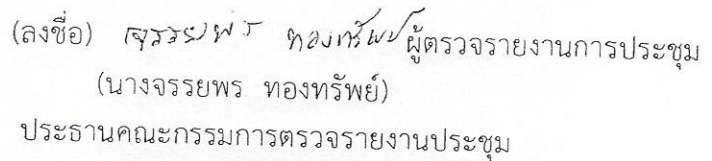 (ลงชื่อ) จรรยพร ทองทรัพย์ ผู้ตรวจรายงานการประชุม
(นางจรรยพร ทองทรัพย์)
ประธานคณะกรรมการตรวจรายงานประชุม